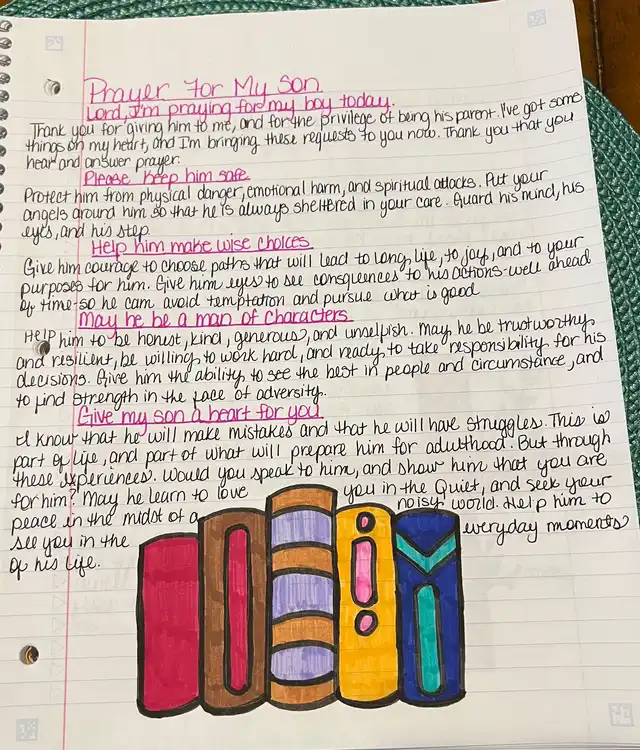 Prayer For My Son
Lord, I'm praying for my boy today.
Thank you for giving him to me, and for the privilege of being his parent. I've got some
things on my heart, and I'm bringing these requests to you now. Thank you that you
hear and answer prayer.
Please keep him safe
Protect him from physical danger, emotional harm, and spiritual attacks. Put your
angels around him so that he is always sheltered in your care. Guard his mind, his
eyes, and his step.
Help him make wise choices
Give him courage to choose paths that will lead to long, life, to joy, and to your
purposes for him. Give him eyes to see consquences to his actions-well ahead
of time-so he cam avoid temptation and pursue what is good
May he be a man of characters
Help him to be honest, kind, generous, and unselfish. May he be trustworthy,
and resilient, be willing to work hard, and ready, to take responsibility for his
decisions. Give him the ability to see the best in people and circumstance, and
to find strength in the face of adversity.
Give my son a heart for you
I know that he will make mistakes and that he will have struggles. This is
part of life, and part of what will prepare him for adulthood. But through
these experiences. Would you speak to him, and show him that you are
for him? May he learn to love you in the Quiet, and seek your
peace in the midst of a noisy world. Help him to
see you in the everyday moments
of his life.